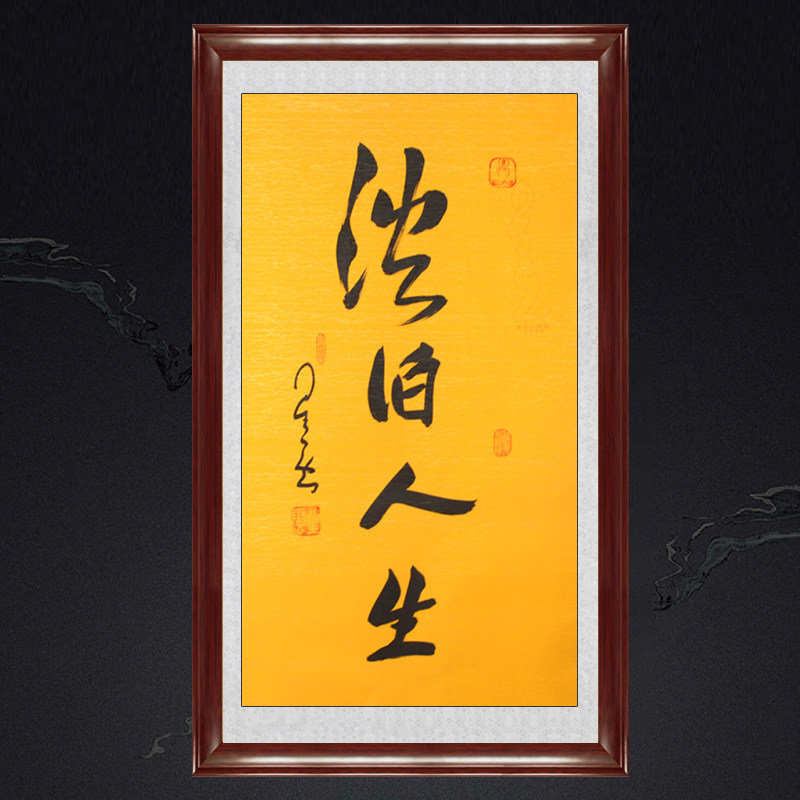 淡泊人生